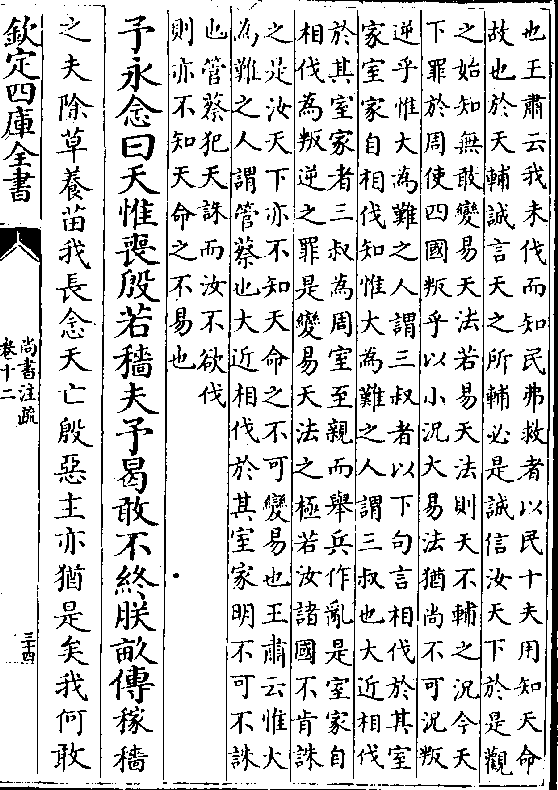 也王肅云我未伐而知民弗救者以民十夫用知天命
故也於天輔誠言天之所輔必是誠信汝天下於是觀
之始知無敢變易天法若易天法則天不輔之況今天
下罪於周使四國叛乎以小況大易法猶尚不可況叛
逆乎惟大為難之人謂三叔者以下句言相伐於其室
家室家自相伐知惟大為難之人謂三叔也大近相伐
於其室家者三叔為周室至親而舉兵作亂是室家自
相伐為叛逆之罪是變易天法之極若汝諸國不肯誅
之是汝天下亦不知天命之不可變易也王肅云惟大
為難之人謂管蔡也大近相伐於其室家明不可不誅
也管蔡犯天誅而汝不欲伐
則亦不知天命之不易也
予永念曰天惟喪殷若穡夫予曷敢不終朕畝傳稼穡
之夫除草養苗我長念天亡殷惡主亦猶是矣我何敢
欽定四庫全書
尚書注疏
卷十二
三十四